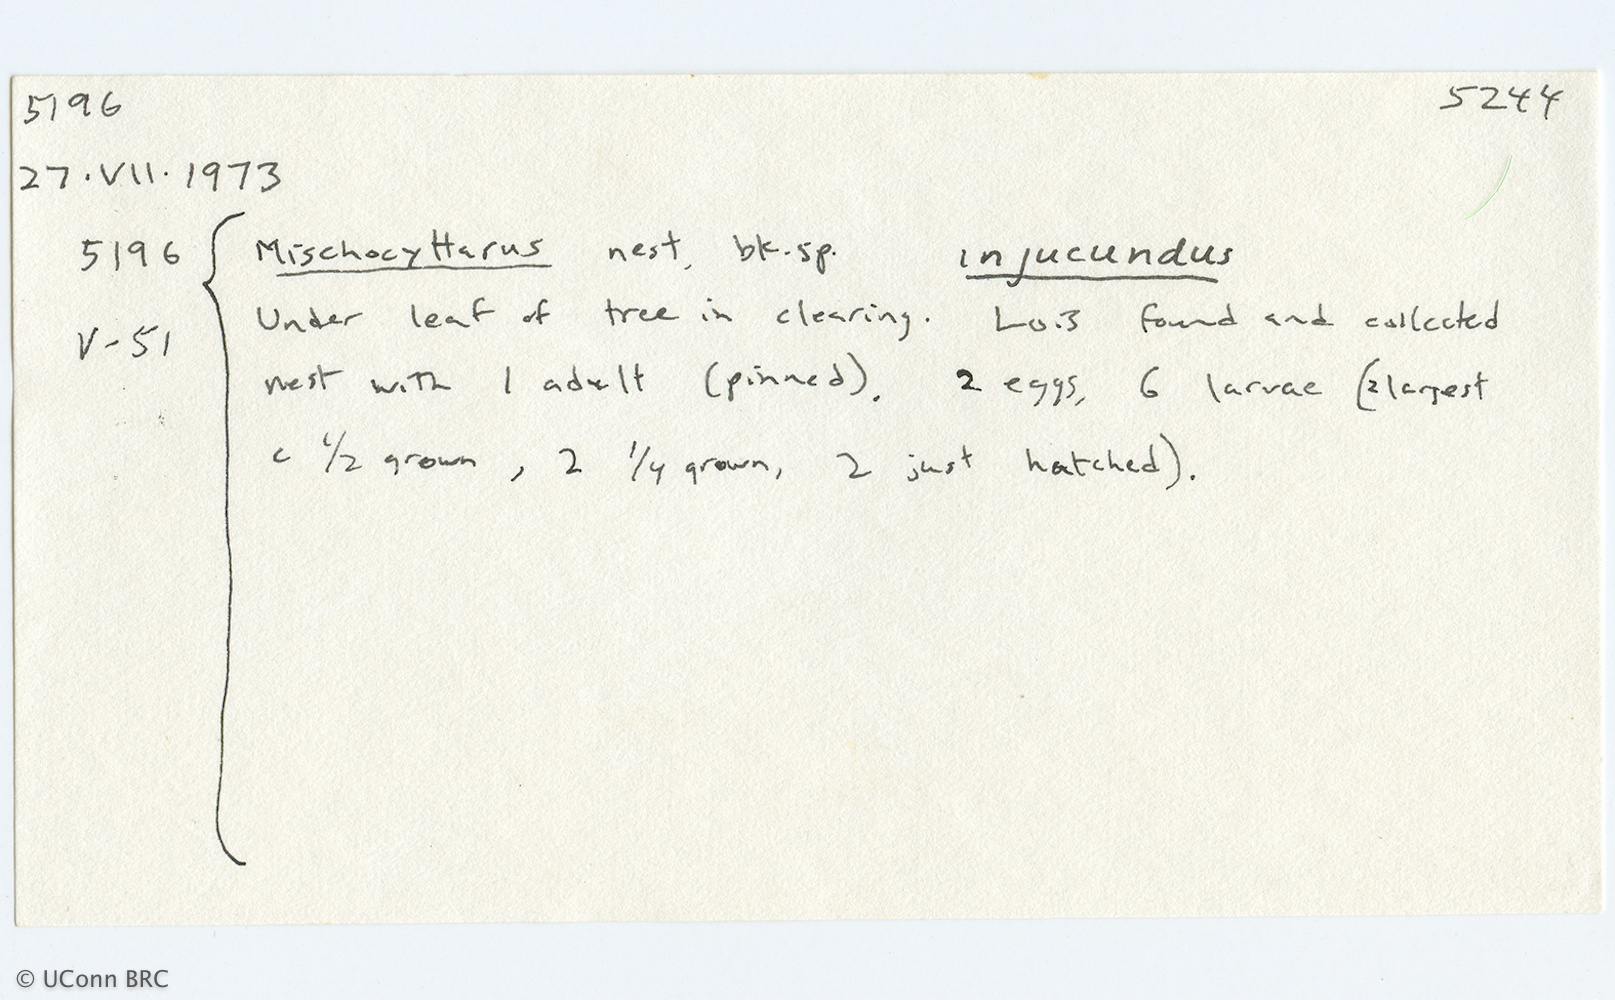 5196 5244
27.VII.1973
5196 Mischocyttarus nest, bk.sp. injucundus
V-51 Under leaf of tree in clearing. Lois found and collected
nest with 1 adult (pinned), 2 eggs, 6 larvae (2 largest
c 1/2 grown, 2 1/4 grown, 2 just hatched).
© UConn BRC